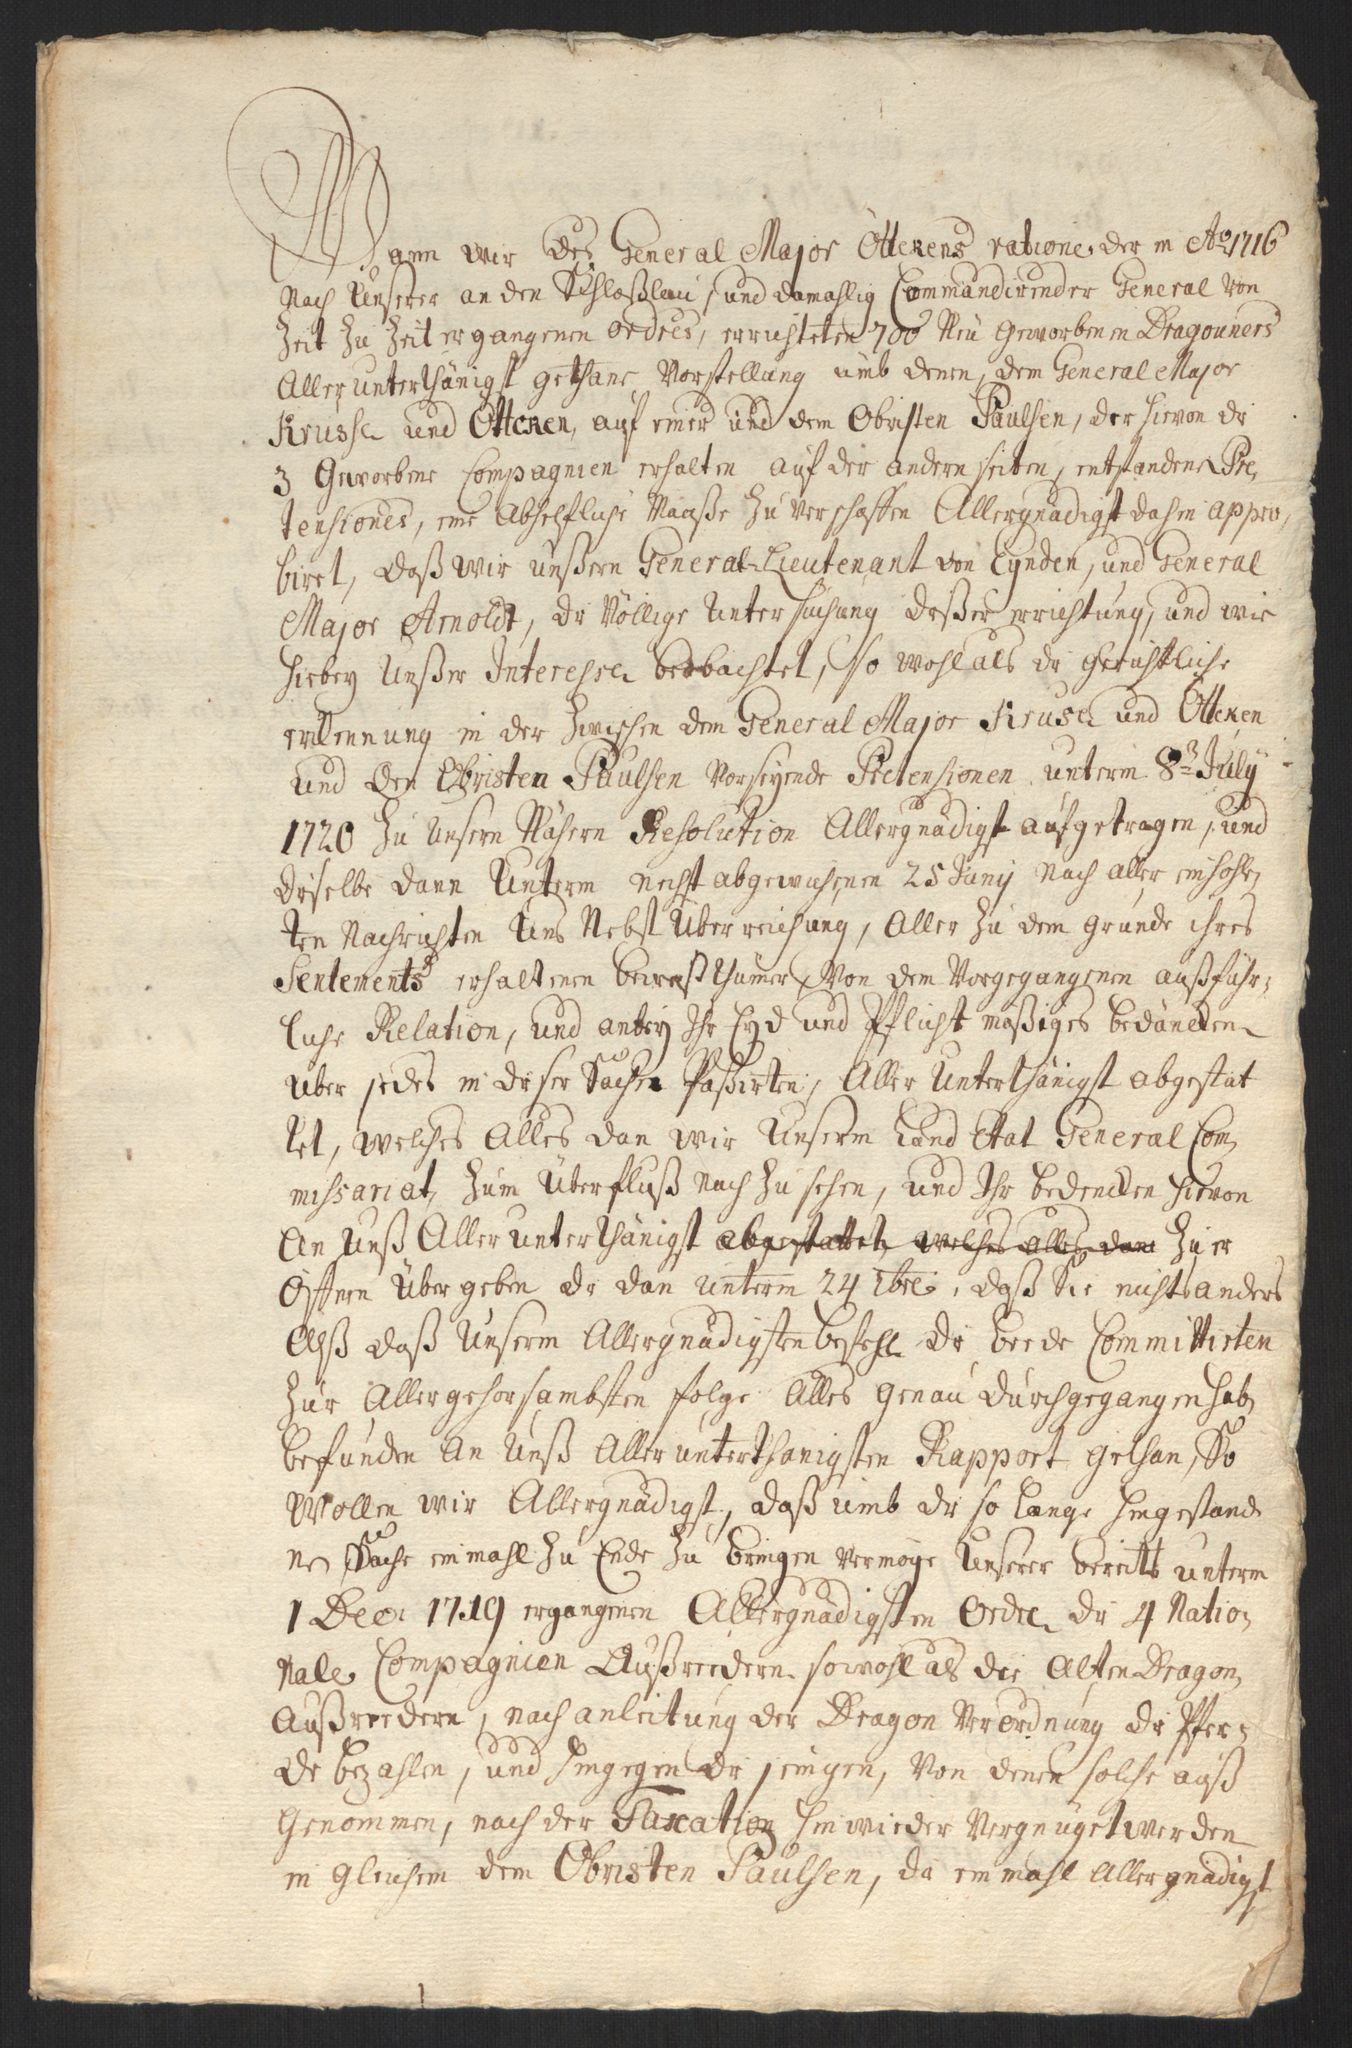 Wann wir des General Major Öttkens ratione der in Ao 1716
Nach Unserer an den Schloßlau, und damahlig Commandirender General von
Zeit zu Zeit ergangenen ordres, errichteten 700 Neu Geworbenen Dragouners
Allerunterthänigst gethane Vorstellung umb denen, dem General Major
Krusse und Öttken, auf einer und dem Obristen Paulsen, der hievon die
3 Geworbene Compagnien erhalten auf der andern seiten, entstandene Præ,
tensiones, eine Abhelfliche Maaße zu verschaffen Allergnädigst dahin appro,
biret, daß wir unßern General-Lieutenant von Eynden, und General
Major Arnoldt, die Völlige Untersuchung deßer errichtung, und wie
hiebey Unßer Interesse beobachtet, so wohl als die Gerichtliche
erkennung in der zwischen dem General Major Kruse und Öttken
und den Obristen Paulsen Vorseyende Prætensionen unterm 8ten July
1720 zu Unsern Nähern Resolution Allergnädigst aufgetragen, und
dieselbe dann Unterm nechst abgewichenen 25 Juny Nach aller einhohl,
ten Nachrichten Uns Nebst Überreichung, Aller zu dem grunde ihres
Sentements erhaltenen beweißthümer, Von dem Vorgegangenen außführ,
liche Relation, und anbey Ihr Eyd und Pflicht mäßiges bedäncken
Über jedes in dieser Sache Paßirten, Aller Unterthänigst abgestat
tet, welches Alles dan wir Unserm Land Etat General Com,
missariat, zum Überfluß nach zu sehen, und Ihr bedencken hievon
An Unß Allerunterthänigst abgestattet, welches alles dan zu er
Öffnen Übergeben die dan unterm 24 7bre, daß Sie nichts anders
Alß daß Unserm Allergnädigsten befehl die beede Committirten
zur Allergehorsambsten folge Alles Genau durchgegangen hab,
befunden An Unß Allerunterthänigsten Rapport gethan, So
Wollen wir Allergnädigst, daß umb die so lange hingestand
ne Sache einmahl zu Ende zu bringen vermöge Unserer bereits unterm
1 Decr 1719 ergangenen Allergnädigsten Ordre die 4 Natio,
nale Compagnien Außreedern sowohl als die Alten Dragon,
Außreedern, nach anleitung der Dragon Verordnung die Pfer,
de bezahlen, und hingegen die jenigen, Von denen solche auß
Genommen, nach der Taxation hinwieder Vergnüget werden
in gleichem dem Obristen Paulsen, da einmahl Allergnädigst